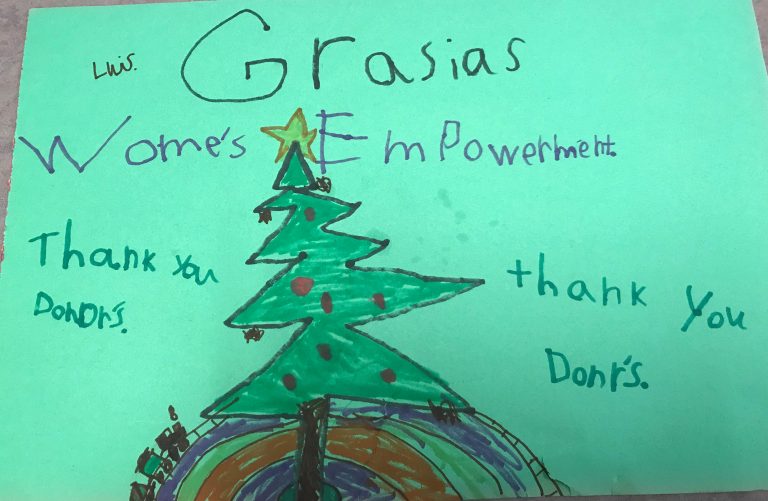 Luis.
Grasias
Wome's Empowerment.
Thank you
Donor's.
thank you
Donr's.